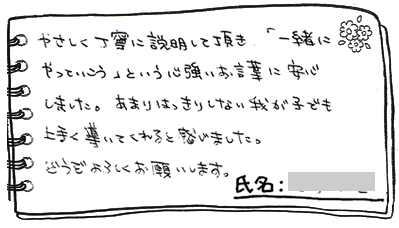 やさしく丁寧に説明して頂き、「一緒に
やっていこう」という心強いお言葉に安心
しました。あまりはっきりしない我が子でも
上手く導いてくれると感じました。
どうぞよろしくお願いします。
氏名: